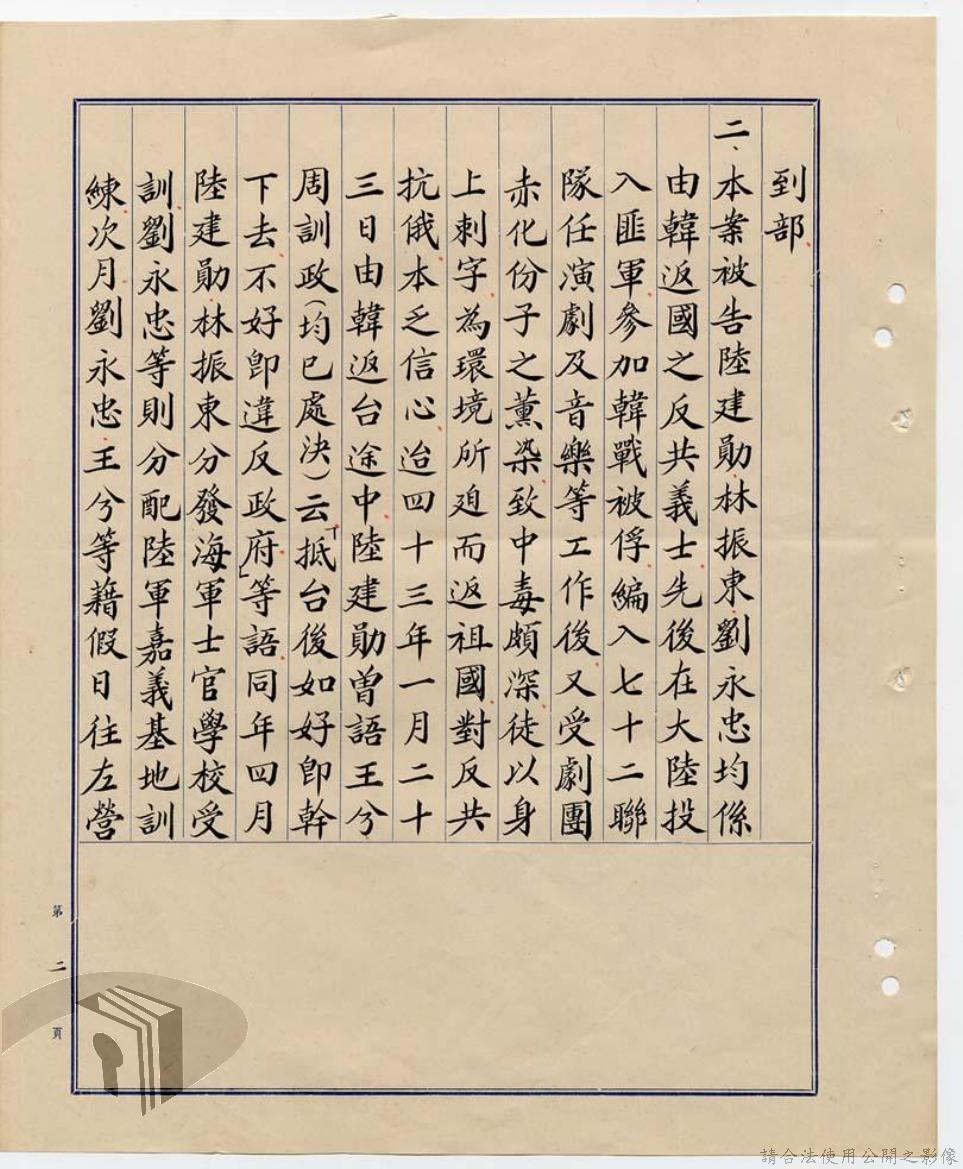 到部
二、本案被告陸建勛林振東劉永忠均係
由韓返國之反共義士先後在大陸投
入匪軍參加韓戰被俘編入七十二聯
隊任演劇及音樂等工作後又受劇團
赤化份子之薰染致中毒頗深徒以身
上刺字為環境所迫而返祖國對反共
抗俄本乏信心迨四十三年一月二十
三日由韓返台途中陸建勛曾語王兮
周訓政(均已處決)云「抵台後如好即幹
下去不好即違反政府」等語同年四月
陸建勛林振東分發海軍士官學校受
訓劉永忠等則分配陸軍嘉義基地訓
練次月劉永忠王兮等藉假日往左營
第二頁
請合法使用公開之影像